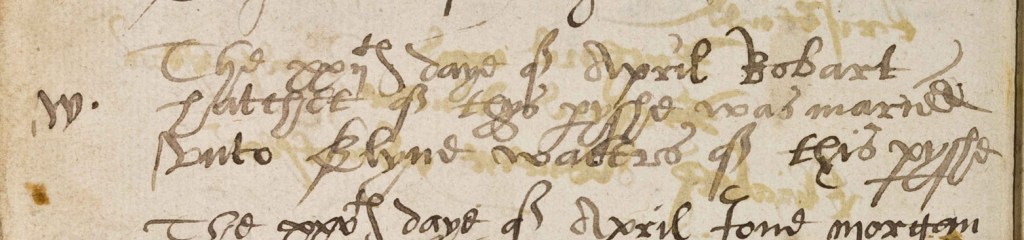 The xxij th daye of April Robart
w. hatchet of thys pysshe was maried
vnto Elyne watters of this pysshe
The xxv th daye of April Jone morgan